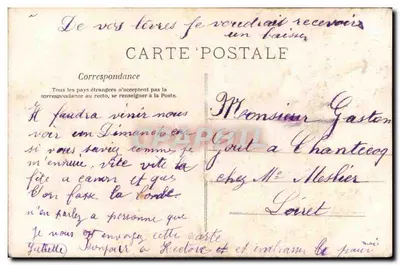 De vos lèvres je voudrais recevoir
un baiser
CARTE POSTALE
Correspondance
Tous les pays étrangers n'acceptent pas la
correspondance au recto, se renseigner à la Poste.
Il faudra venir nous
voir un Dimanche
si vous saviez comme je
m'ennuie, vite vite la
fête a et que
l'on fasse la
n'en parlez a personne que
je vous ai envoyez cette carte
Bonjour à Hector et
Monsieur Gaston
gout à Chantecoq
chez Mr Meslier
Loiret